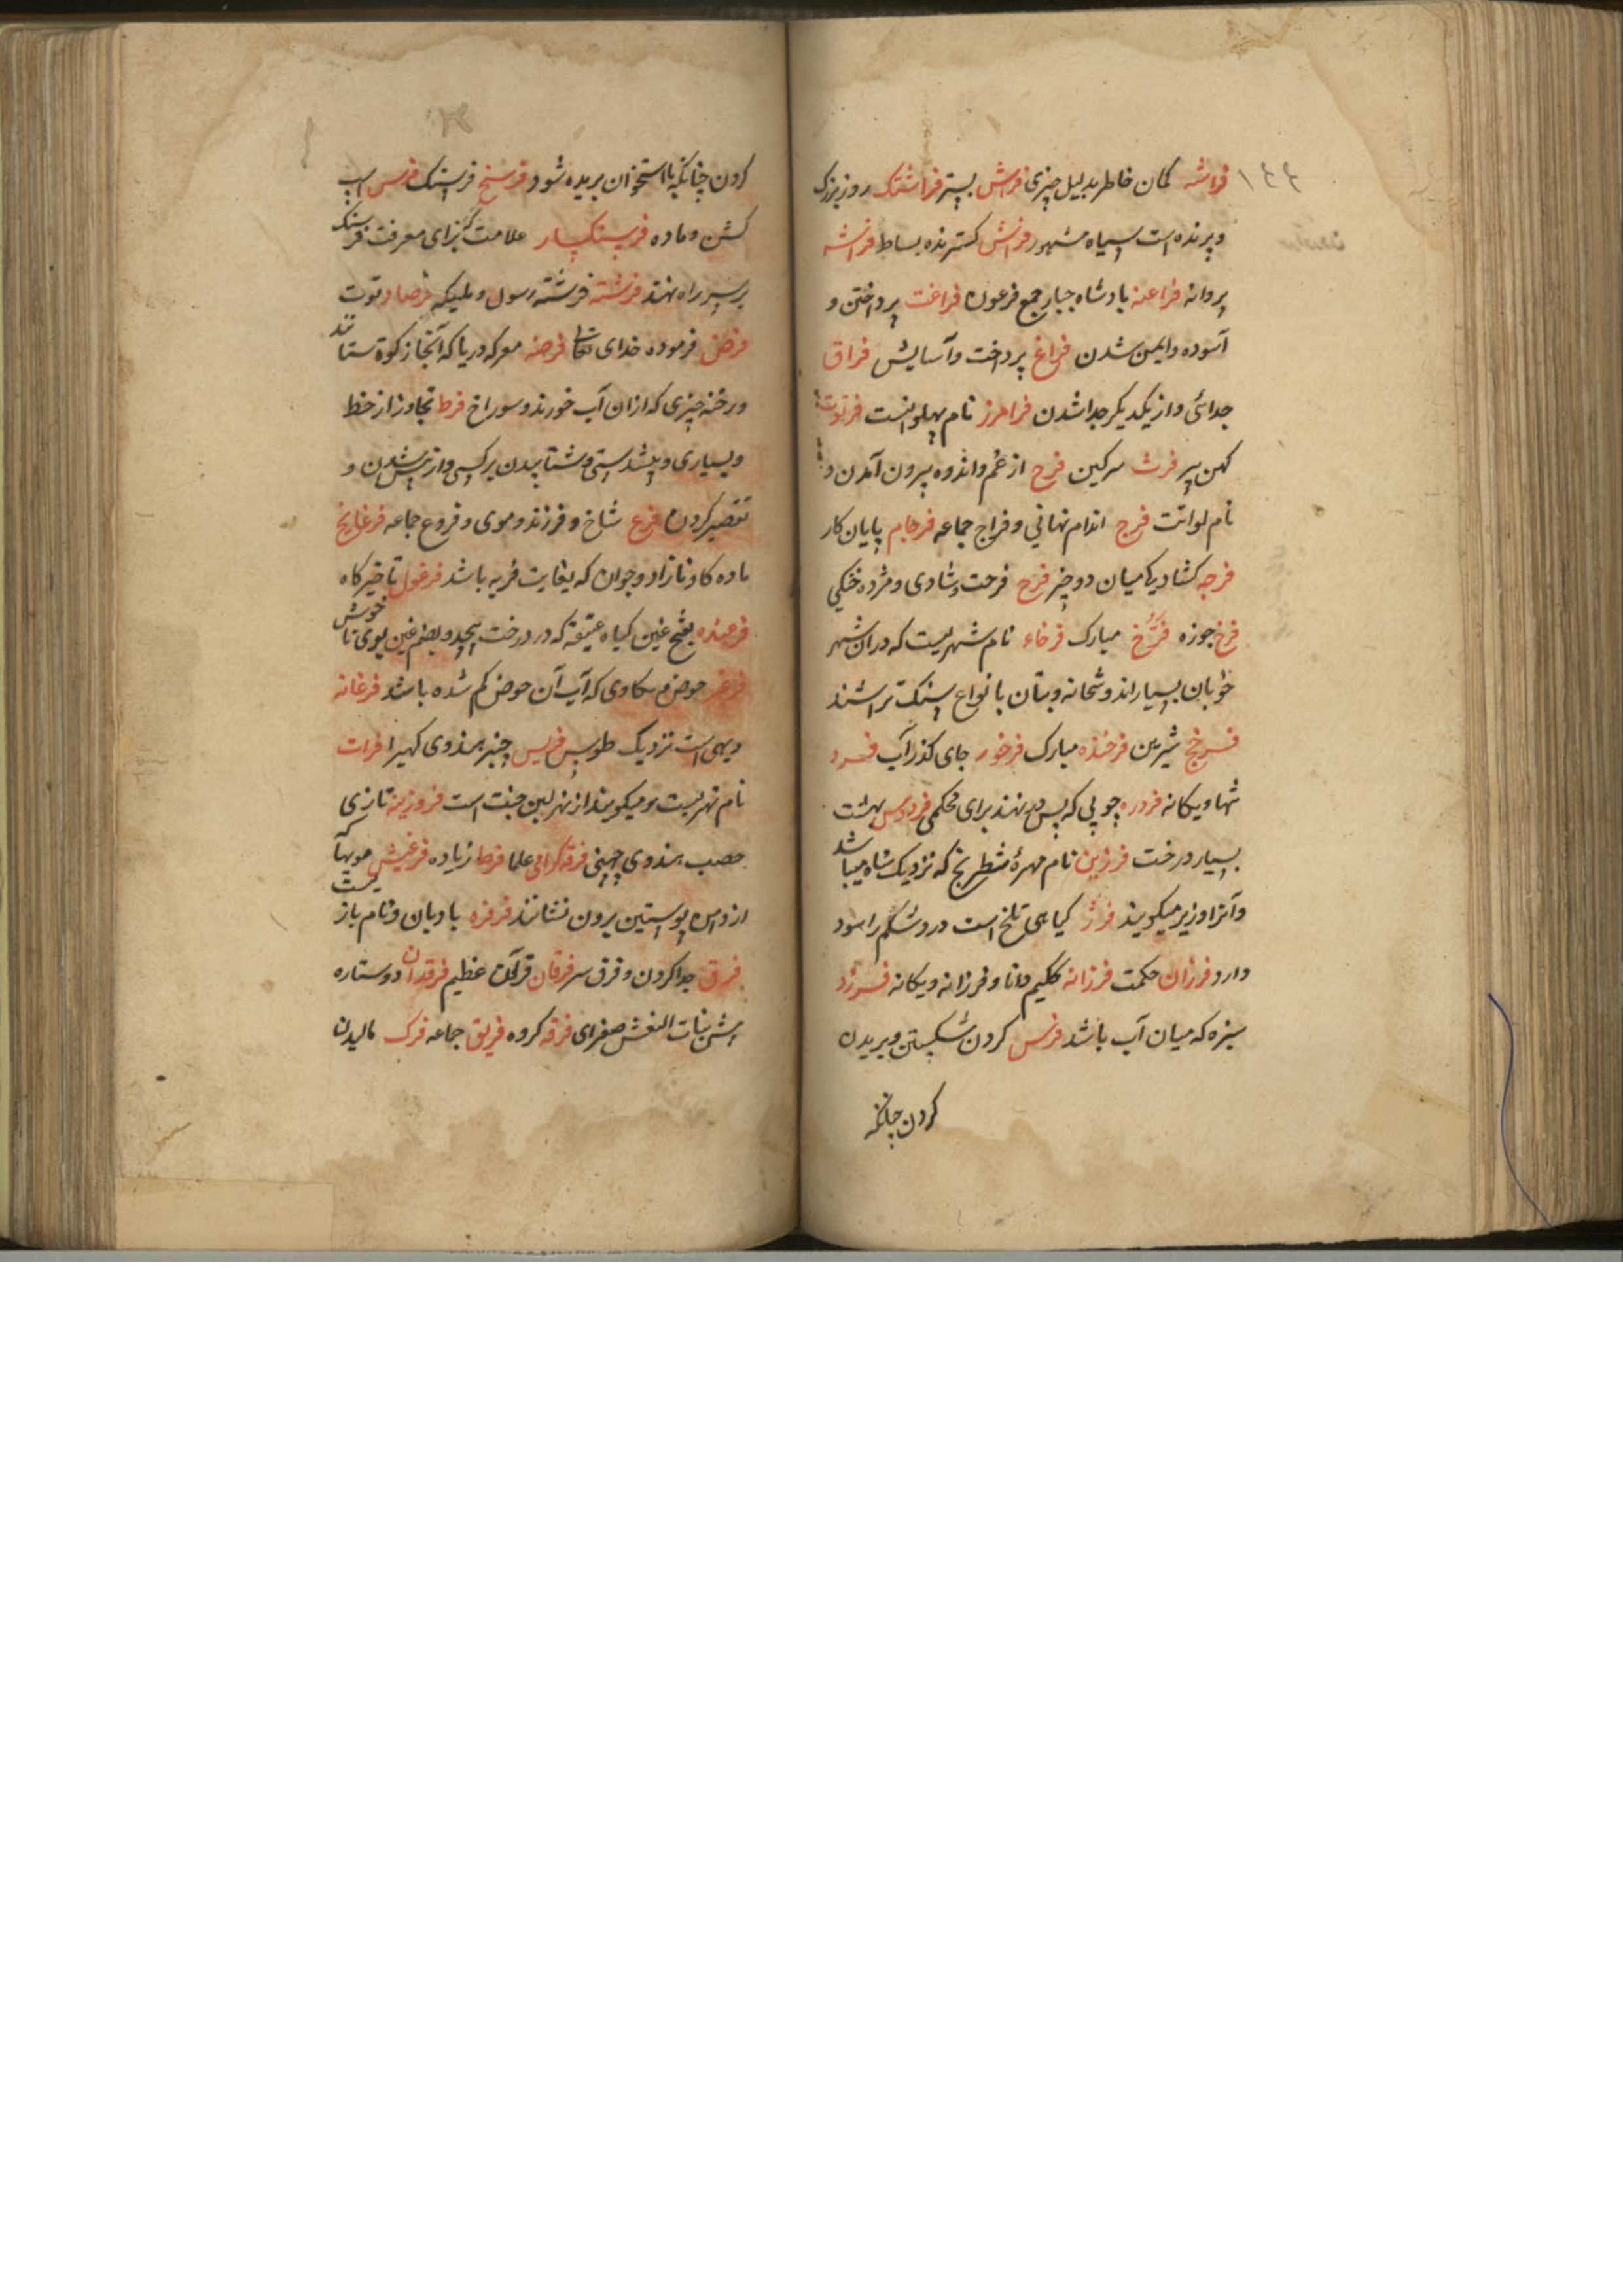 ۱۴۴
فراسته کمان خاطر بدلیل چیزی فراش بستر فراشتک روز بزرک
و پرنده است سیاه مشهور فراش کسترنده بساط فراشه
پروانه فراعنه بادشاه جبار جمع فرعون فراغت پرداختن و
آسوده و ایمن شدن فراغ پرداخت و آسایش فراق
جدائی و از یکدیکر جدا شدن فرامرز نام پهلوانیست فرتوت
کهن پیر فرث سرکین فرج از غم و اندوه بیرون آمدن و
نام لوانت فرج اندام نهانی و فراج جماعه فرجام پایان کار
فرجه کشادیکه میان دو چیز فرح فرحت و شادی و مژده خنکی
فرخ جوزه فرّخ مبارک فرخاء نام شهریست که در آن شهر
خوبان بسیار اند و بتخانه و بتان بانواع سنک تراشند
فرخج شیرین فرخنده مبارک فرخور جای کذر آب فرد
تنها و یکانه فردره چوبی که پس در نهند برای محکمی فردوس بهشت
بسیار درخت فرزین نام مهرهٔ شطرنج که نزدیک شاه میباشد
و آنرا وزیر میکویند فرژ کیاهی تلخ است درد شکم را سود
دارد فرزان حکمت فرزانه حکیم دانا و فرزانه و یکانه فرزد
سبزه که میان آب باشد فرس کردن شکستن و بریدن
کردن چنانکه
کردن چنانکه با استخوان بریده شود فرسخ فرسنک فرس اسپ
کشن و ماده فرسنکسار علامت که برای معرفت فرسنک
بر سر راه نهند فرشته فرشته رسول و ملیکه فرصاد توت
فرض فرموده خدای تعالی فرضه معرکه دریا که آنجا زکوة ستانند
و رخنه چیزی که از ان آب خورند و سوراخ فرط تجاوز از خط
و بسیاری و پیشدستی و شتابیدن بر کسی و از پیش شدن و
تقصیر کردن فرع شاخ و فرزند و موی و فروع جماعه فرغانج
ماده کاو نازاد و جوان که بغایت فربه باشد فرغول تاخیر کاه
فرغنده بفتح غین کیاه عتیقه که در درخت پیچد و بضم غین بوی ناخوش
فرغر حوض م سکاوی که آب آن حوض کم شده باشد فرغانه
دیهی است نزدیک طوس فریس چنبر هندوی کهیرا فرات
نام نهریست و میکویند از نهر لبن جنت است فروزینه تازی
حصب هندوی چهنی فرقه کراهی علما فرط زیاده فرغیش مویها که
از دامن پوستین برون نشانند فرفره بادبان و نام بازیست
فرق جدا کردن و فرق سر فرقان قرآن عظیم فرقدان دو ستاره
بنات النعش صغرای فرقه کروه فریق جماعه فرک مالیدن